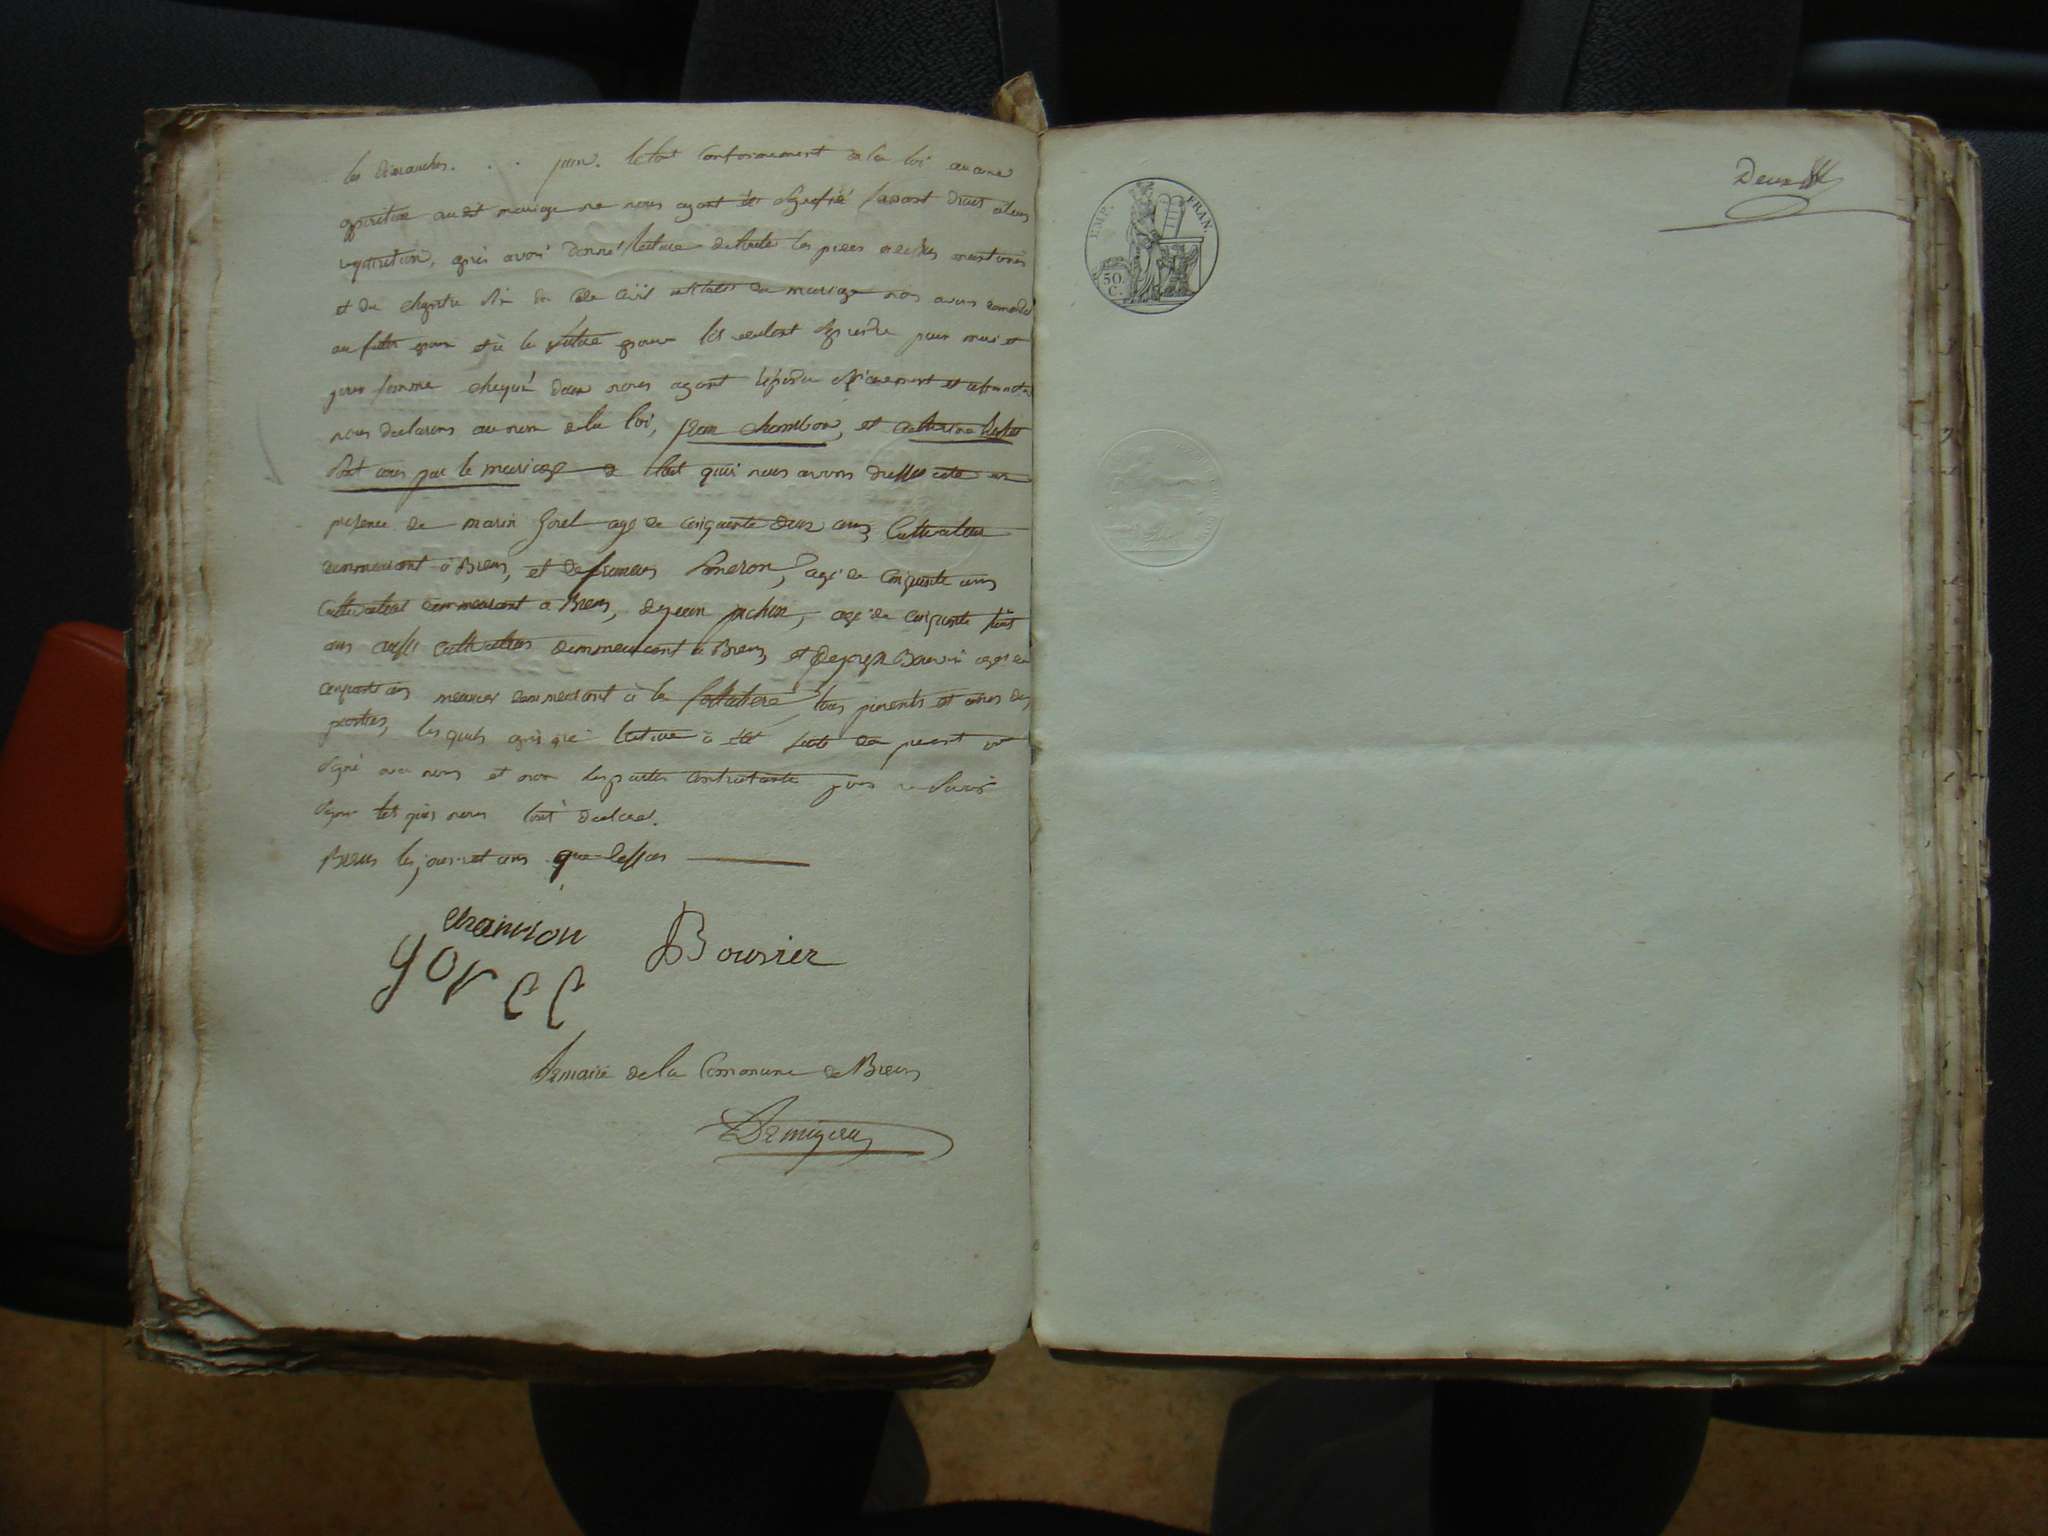 les dimanches . . . juin. le tout conformement a la loi aucune
opposition audit mariage ne nous ayant été signifié faisant droit a leur
requisition, après avoir donné lecture de toute les pieces
et du chapitre six du Code Civil du mariage nous avons demandé
au futur epoux et à la future epouse s'ils veulent se prendre pour mari et
pour femme chaqu'un deux nous ayant repondu
nous declarons au nom de la loi, jean chambon, et catherine
sont unis par le mariage de tout quoi nous avons dressé acte en
presence de marin gorel agé de cinquante deux ans Cultivateur
demmeurant à Biens, et de francois agé de cinquante ans
Cultivateur demmeurant a Biens, de jean pichon, agé de cinquante
ans aussi cultivateur demmeurant a Biens, et de joseph Bouvier agé de
cinquante ans demmeurant à la tous parents et amis des
parties, les quels après que lecture a été faite du present ont
signé avec nous et non les parties contractante pour ne savoir
signer tel quis nous l'ont declaré.
Biens les jour et ans que dessus
chambon
gorel Bouvier
le maire de la Commune de Biens
Deux
EMP. FRAN.
50
C.